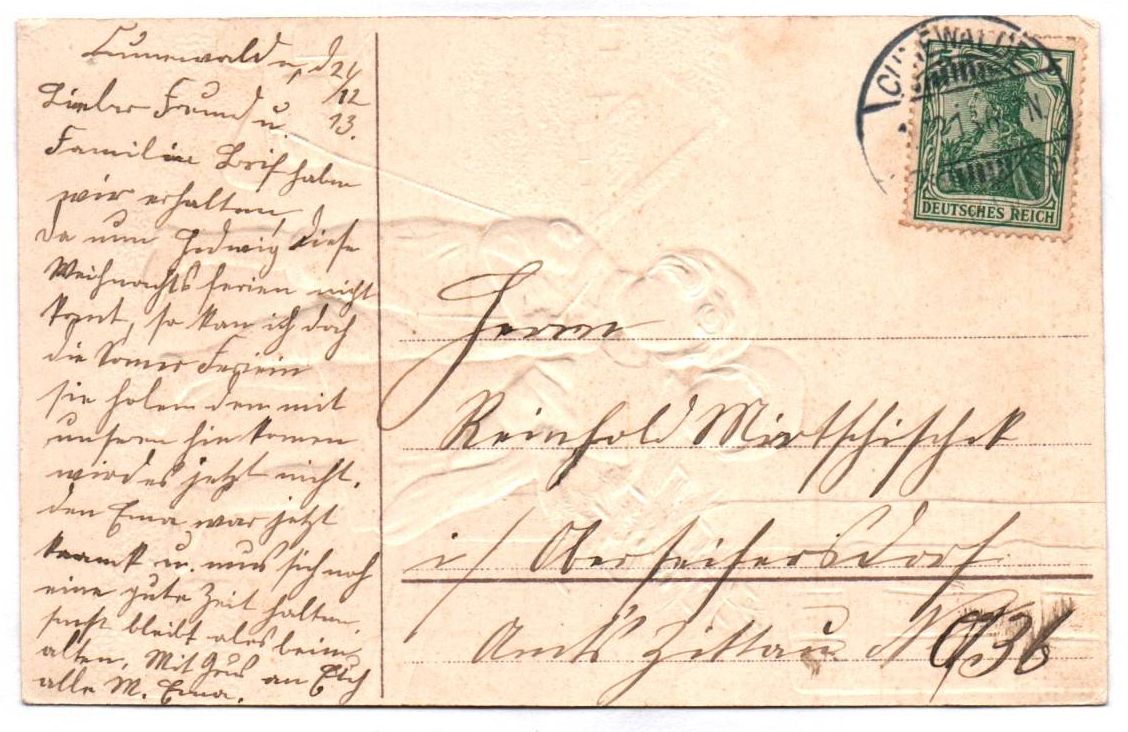 Cunewald, d 24/12 13.
Lieber Freund u.
Familie Brif haben
wir erhalten,
da nun Hedwig diese
Weihnachts ferien nicht
komt, so kan ich doch
die Somer Ferien
sie holen den mit
unsern hin komen
wird es jetzt nicht,
den Ema war jetzt
krank u. mus sich noch
eine gute Zeit halten
sonst bleibt ales beim
alten, Mit Grus an Euch
alle M. Ema.
CUNEWALDE
DEUTSCHES REICH
Herrn
Reinhold Mirtschischk
i/ Oberseifersdorf
Amts Zittau N 136